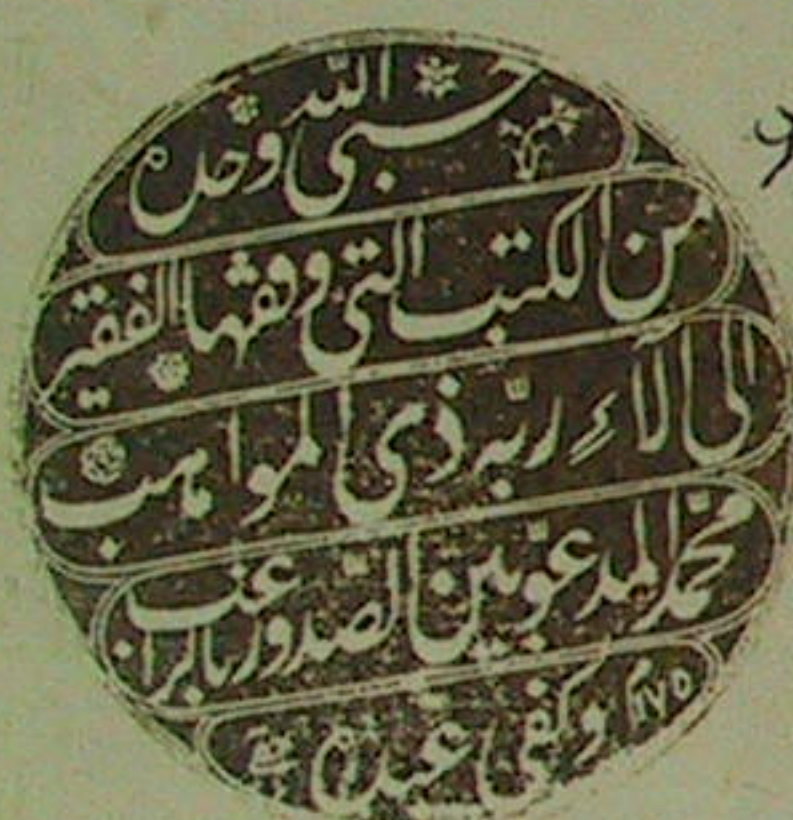 حسبى الله وحده
من الكتب التى وقفها الفقير
الى آلاء ربّه ذى المواهب
محمّد المدعوّ بين الصّدور بالراغب
١١٧٥ وكفى عبده